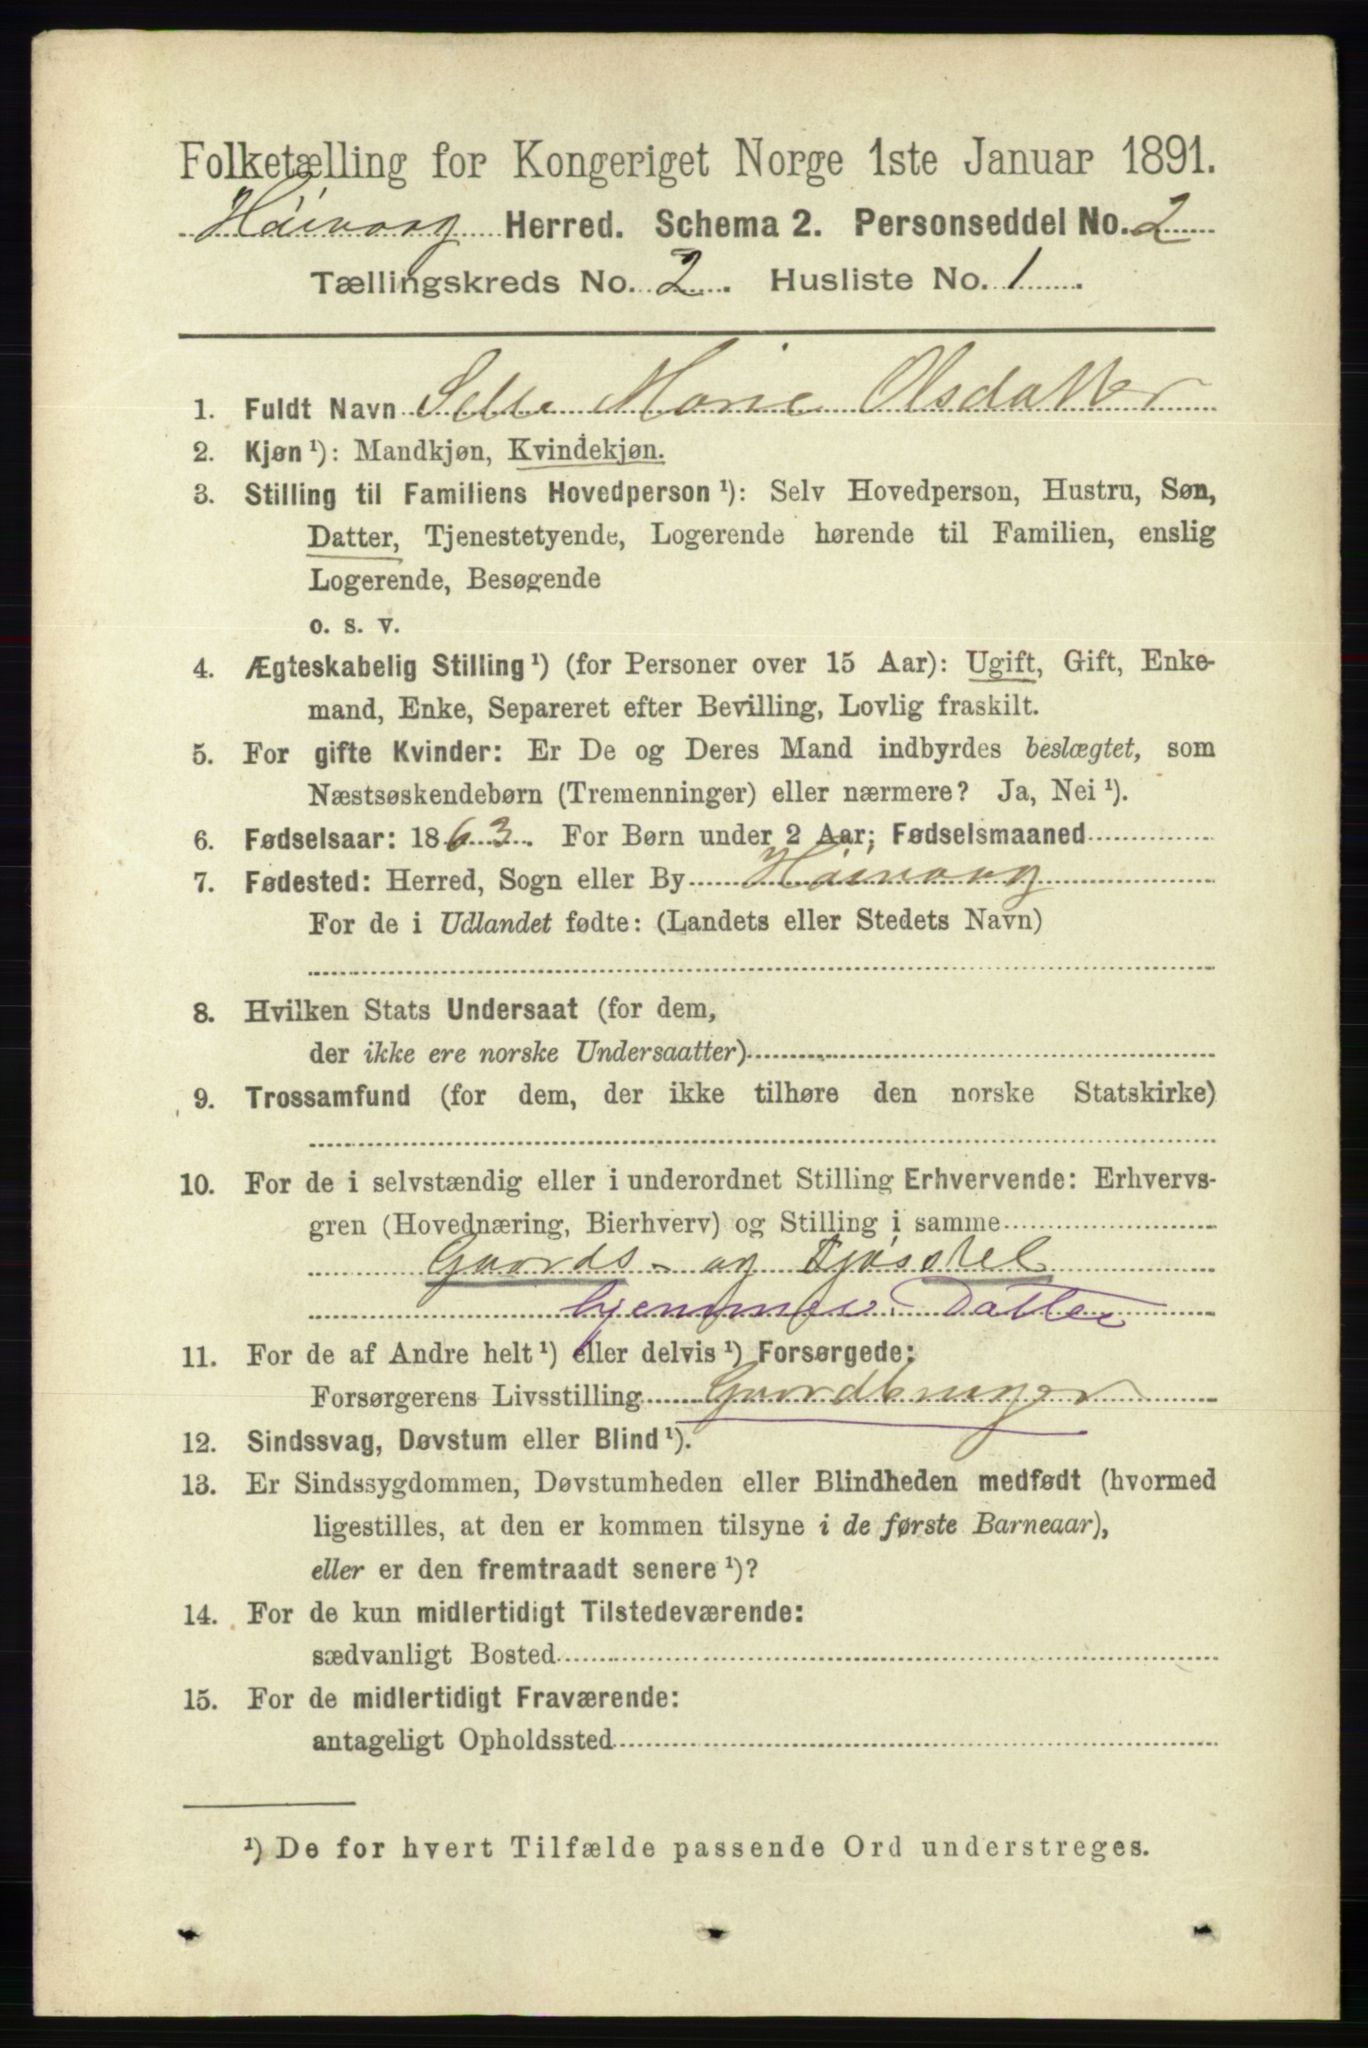 Folketælling for Kongeriget Norge 1ste Januar 1891.
Høivaag Herred. Schema 2. Personseddel No. 2
Tællingskreds No. 2. Husliste No. 1.
1. Fuldt Navn Selle Marie Olsdatter
2. Kjøn¹): Mandkjøn, Kvindekjøn.
3. Stilling til Familiens Hovedperson¹): Selv Hovedperson, Hustru, Søn,
Datter, Tjenestetyende, Logerende hørende til Familien, enslig
Logerende, Besøgende
o. s. v.
4. Ægteskabelig Stilling¹) (for Personer over 15 Aar): Ugift, Gift, Enke-
mand, Enke, Separeret efter Bevilling, Lovlig fraskilt.
5. For gifte Kvinder: Er De og Deres Mand indbyrdes beslægtet, som
Næstsøskendebørn (Tremenninger) eller nærmere? Ja, Nei¹).
6. Fødselsaar: 1863. For Børn under 2 Aar; Fødselsmaaned
7. Fødested: Herred, Sogn eller By Høivaag
For de i Udlandet fødte: (Landets eller Stedets Navn)
8. Hvilken Stats Undersaat (for dem,
der ikke ere norske Undersaatter)
9. Trossamfund (for dem, der ikke tilhøre den norske Statskirke)
10. For de i selvstændig eller i underordnet Stilling Erhvervende: Erhvervs-
gren (Hovednæring, Bierhverv) og Stilling i samme
Gaards- og Fjøsstel
hjemmev. Datter
11. For de af Andre helt¹) eller delvis¹) Forsørgede:
Forsørgerens Livsstilling Gaardbruger
12. Sindssvag, Døvstum eller Blind¹).
13. Er Sindssygdommen, Døvstumheden eller Blindheden medfødt (hvormed
ligestilles, at den er kommen tilsyne i de første Barneaar),
eller er den fremtraadt senere¹)?
14. For de kun midlertidigt Tilstedeværende:
sædvanligt Bosted
15. For de midlertidigt Fraværende:
antageligt Opholdssted
¹) De for hvert Tilfælde passende Ord understreges.